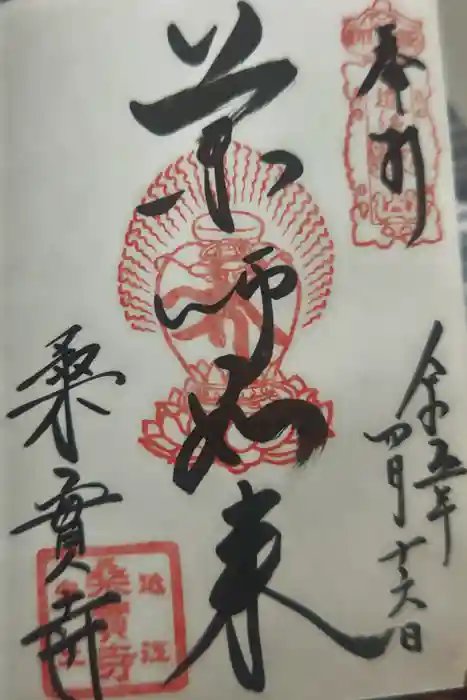 奉拝
令和五年
四月十六日
薬師如来
桑實寺
近江
桑實寺